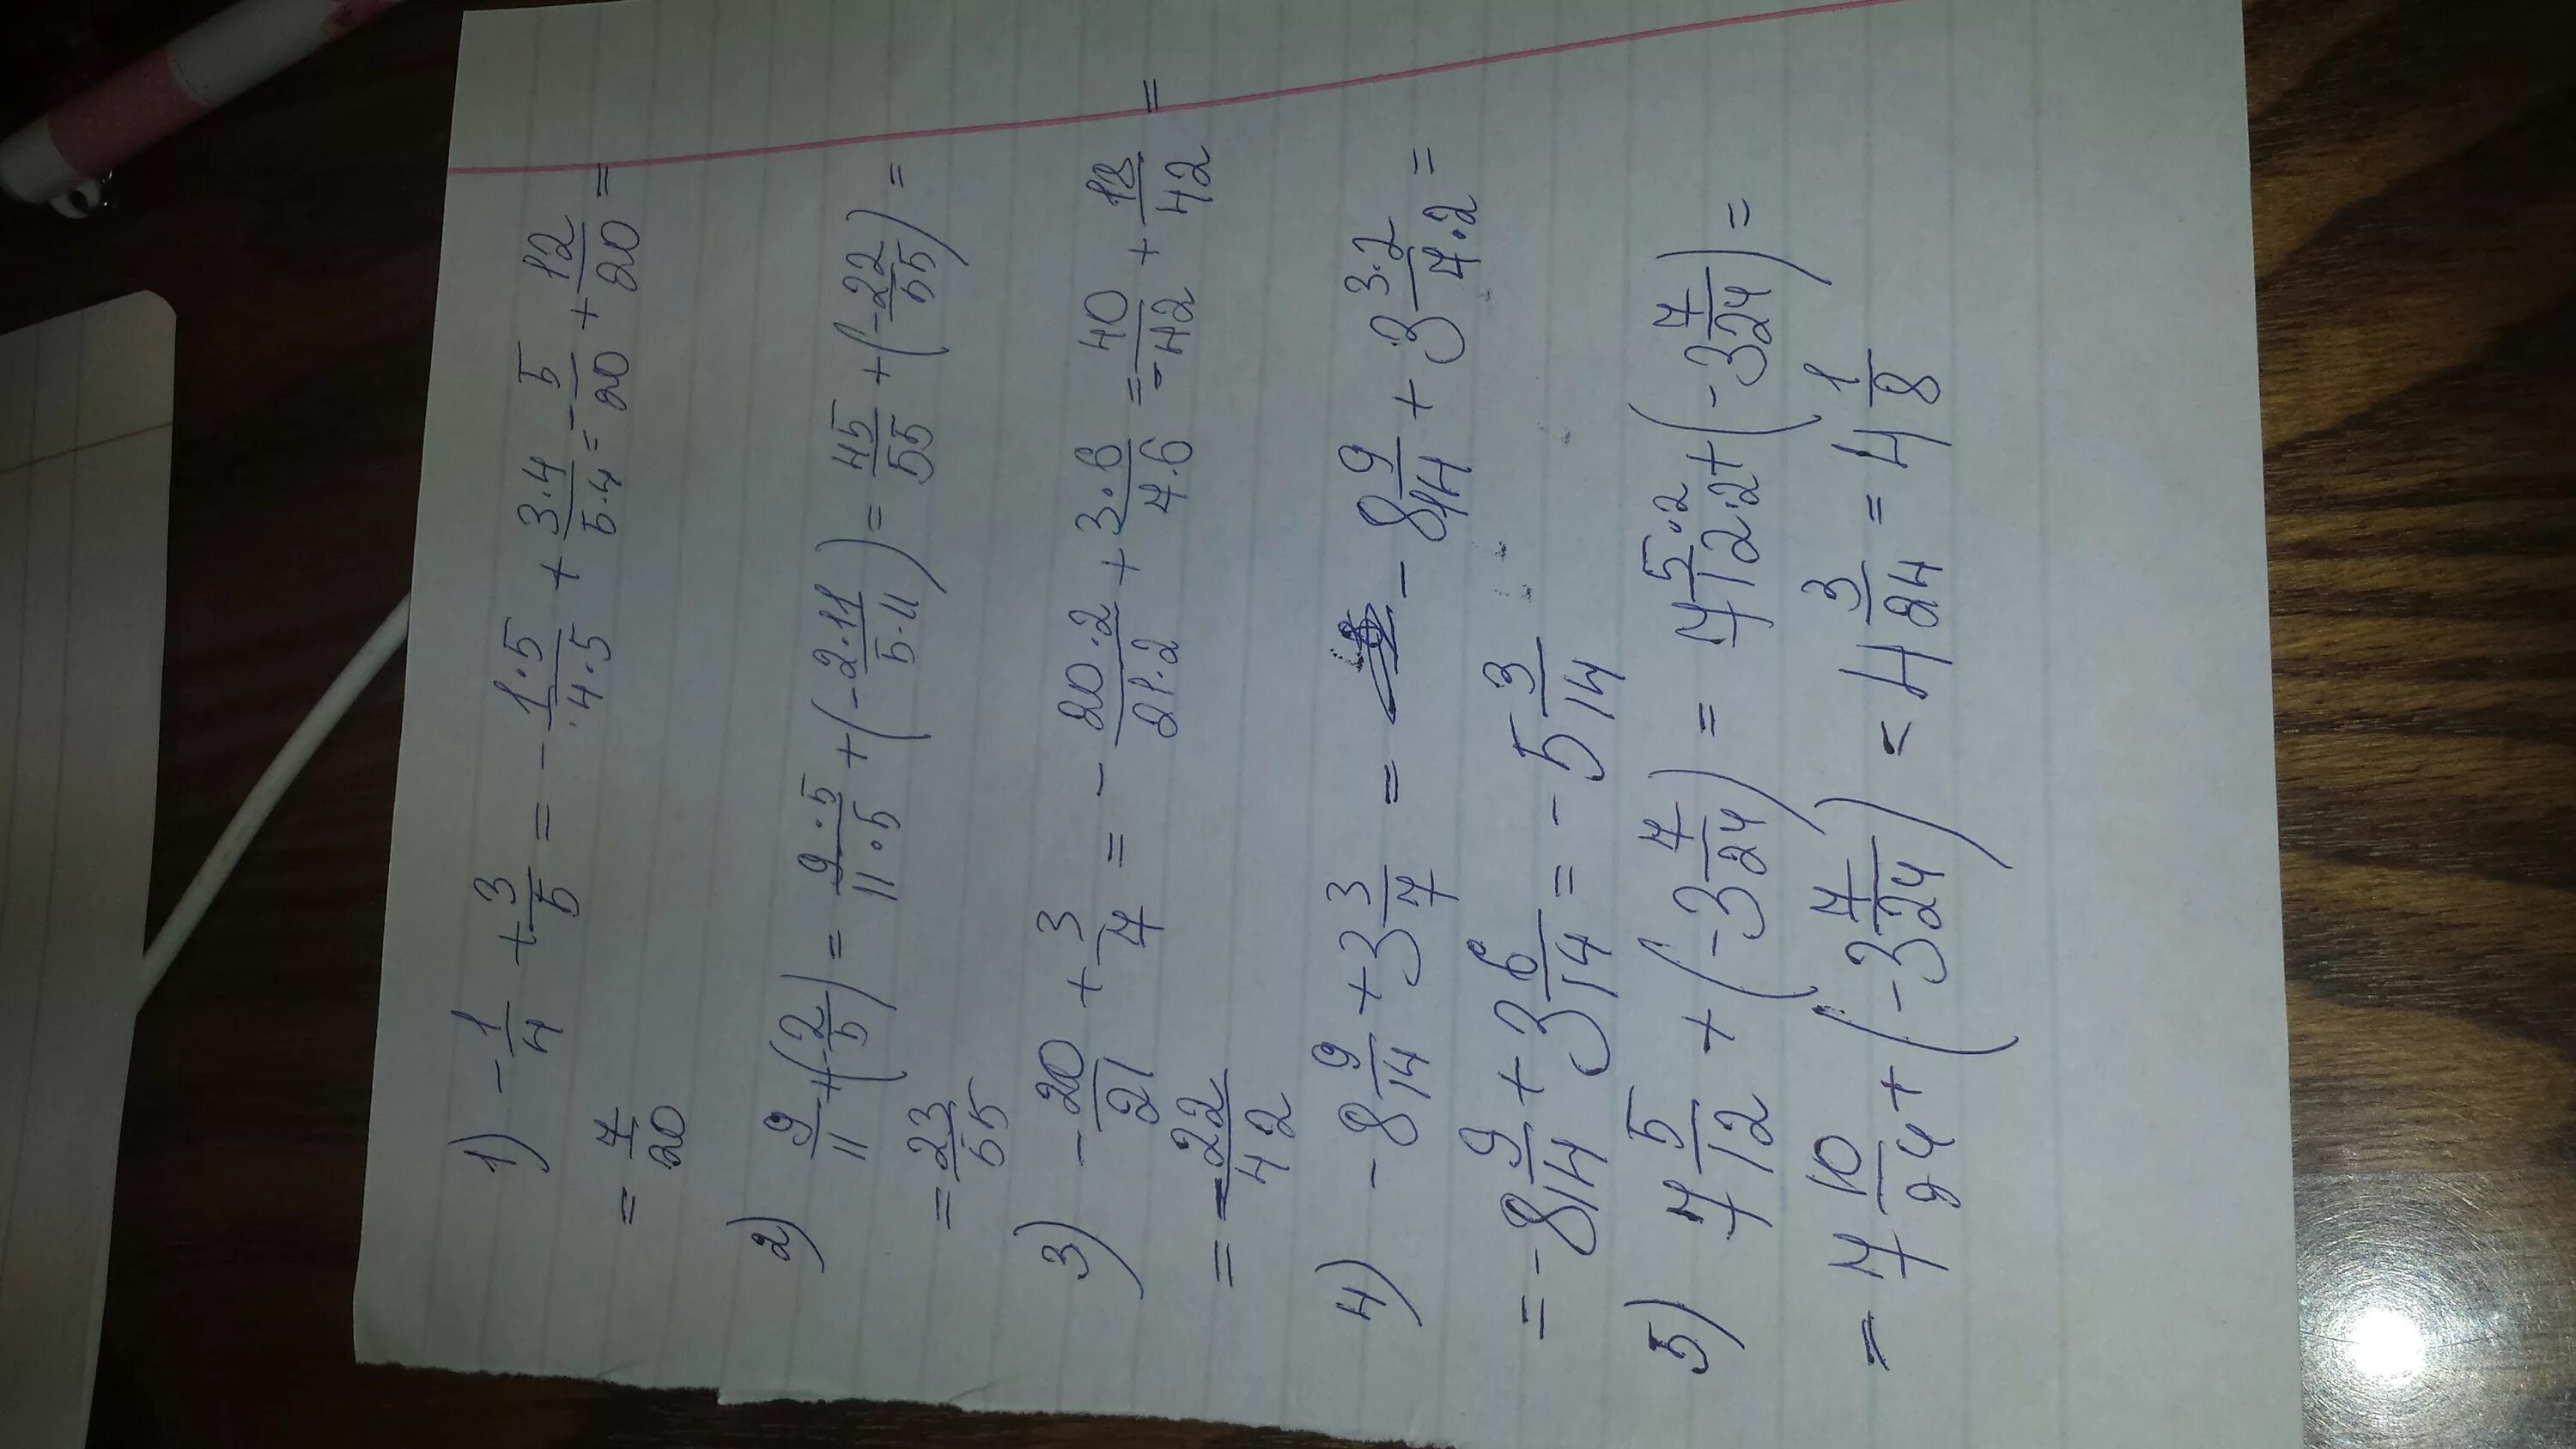 1) -1/4 + 3/5 = -1·5/4·5 + 3·4/5·4 = -5/20 + 12/20 =
= 7/20
2) 9/11 + (-2/5) = 9·5/11·5 + (-2·11/5·11) = 45/55 + (-22/55) =
= 23/55
3) -20/21 + 3/7 = -20·2/21·2 + 3·6/7·6 = -40/42 + 18/42 =
= -22/42
4) -8 9/14 + 3 3/7 = -8 9/14 + 3 3·2/7·2 =
= -8 9/14 + 3 6/14 = -5 3/14
5) 7 5/12 + (-3 7/24) = 7 5·2/12·2 + (-3 7/24) =
= 7 10/24 + (-3 7/24) = 4 3/24 = 4 1/8